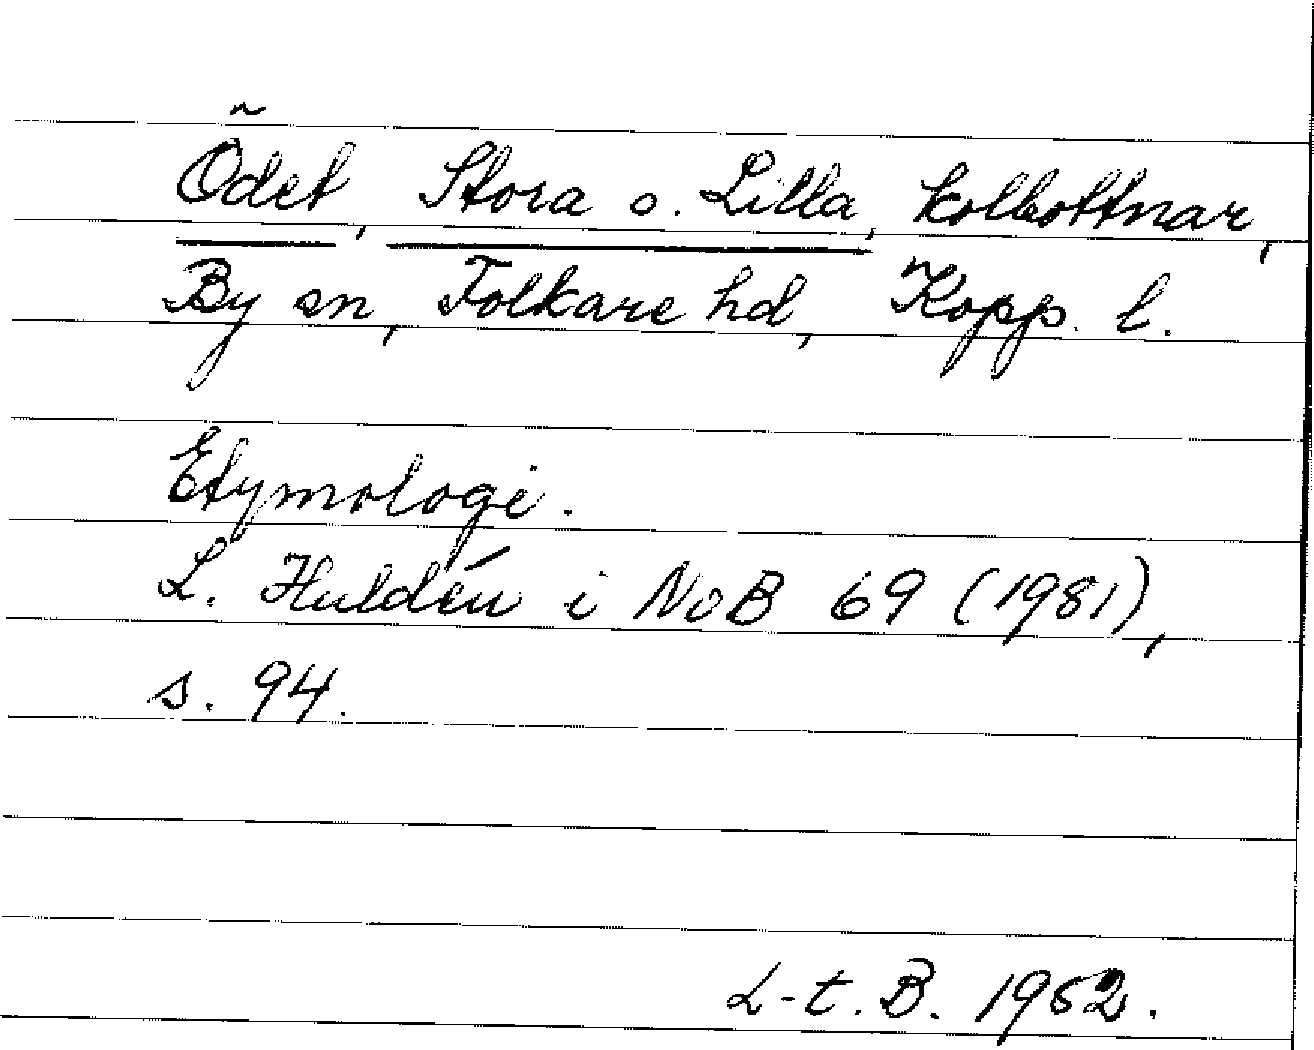 Ödet, Stora o. Lilla, kolbottnar,
By sn, Folkare hd, Kopp. l.
Etymologi.
L. Huldén i NoB 69 (1981),
s. 94.
L-t. B. 1982.